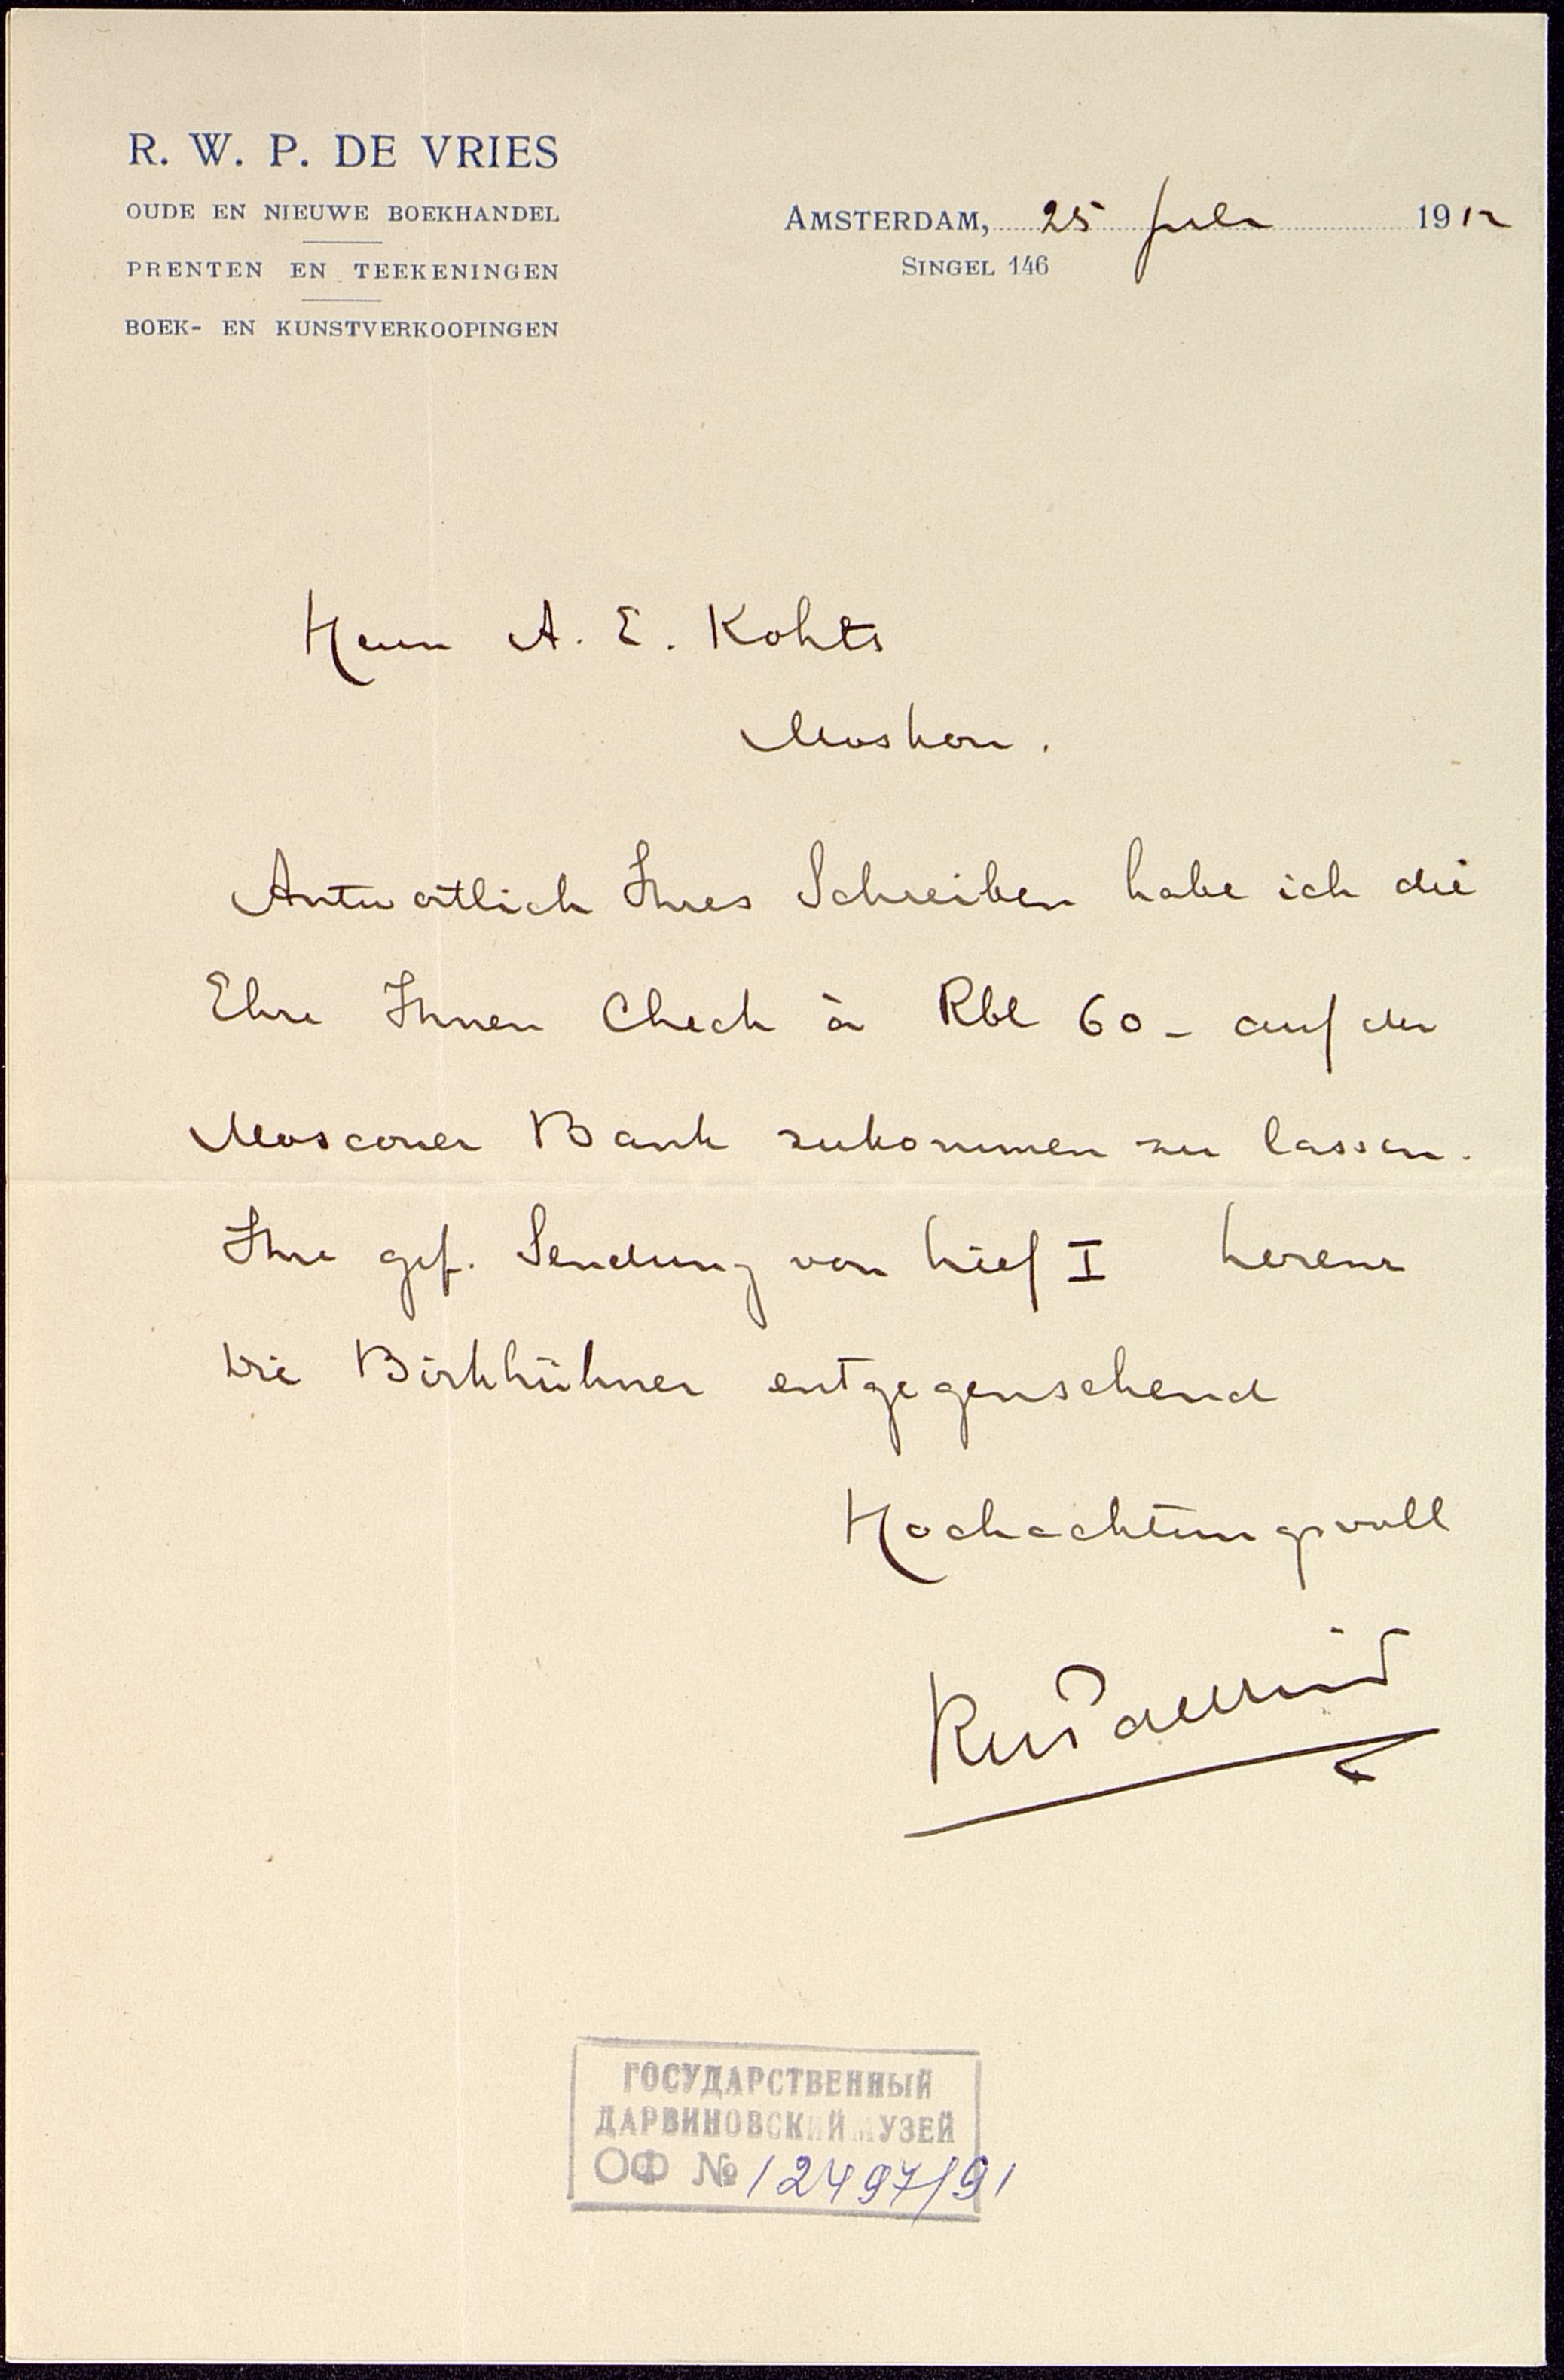 R. W. P. DE VRIES
OUDE EN NIEUWE BOEKHANDEL
PRENTEN EN TEEKENINGEN
BOEK- EN KUNSTVERKOOPINGEN
AMSTERDAM, 25 Juli 1912
SINGEL 146
Herrn A. E. Kohts
Moskou.
Antwortlich Ihres Schreiben habe ich die
Ehre Ihnen Check à Rbl 60_ auf der
Moscouer Bank zukommen zu lassen.
Ihre gef. Sendung von I
Birkhühner entgegensehend
Hochachtungsvoll
RWPdeVries
ГОСУДАРСТВЕННЫЙ
ДАРВИНОВСКИЙ МУЗЕЙ
ОФ № 12497/91